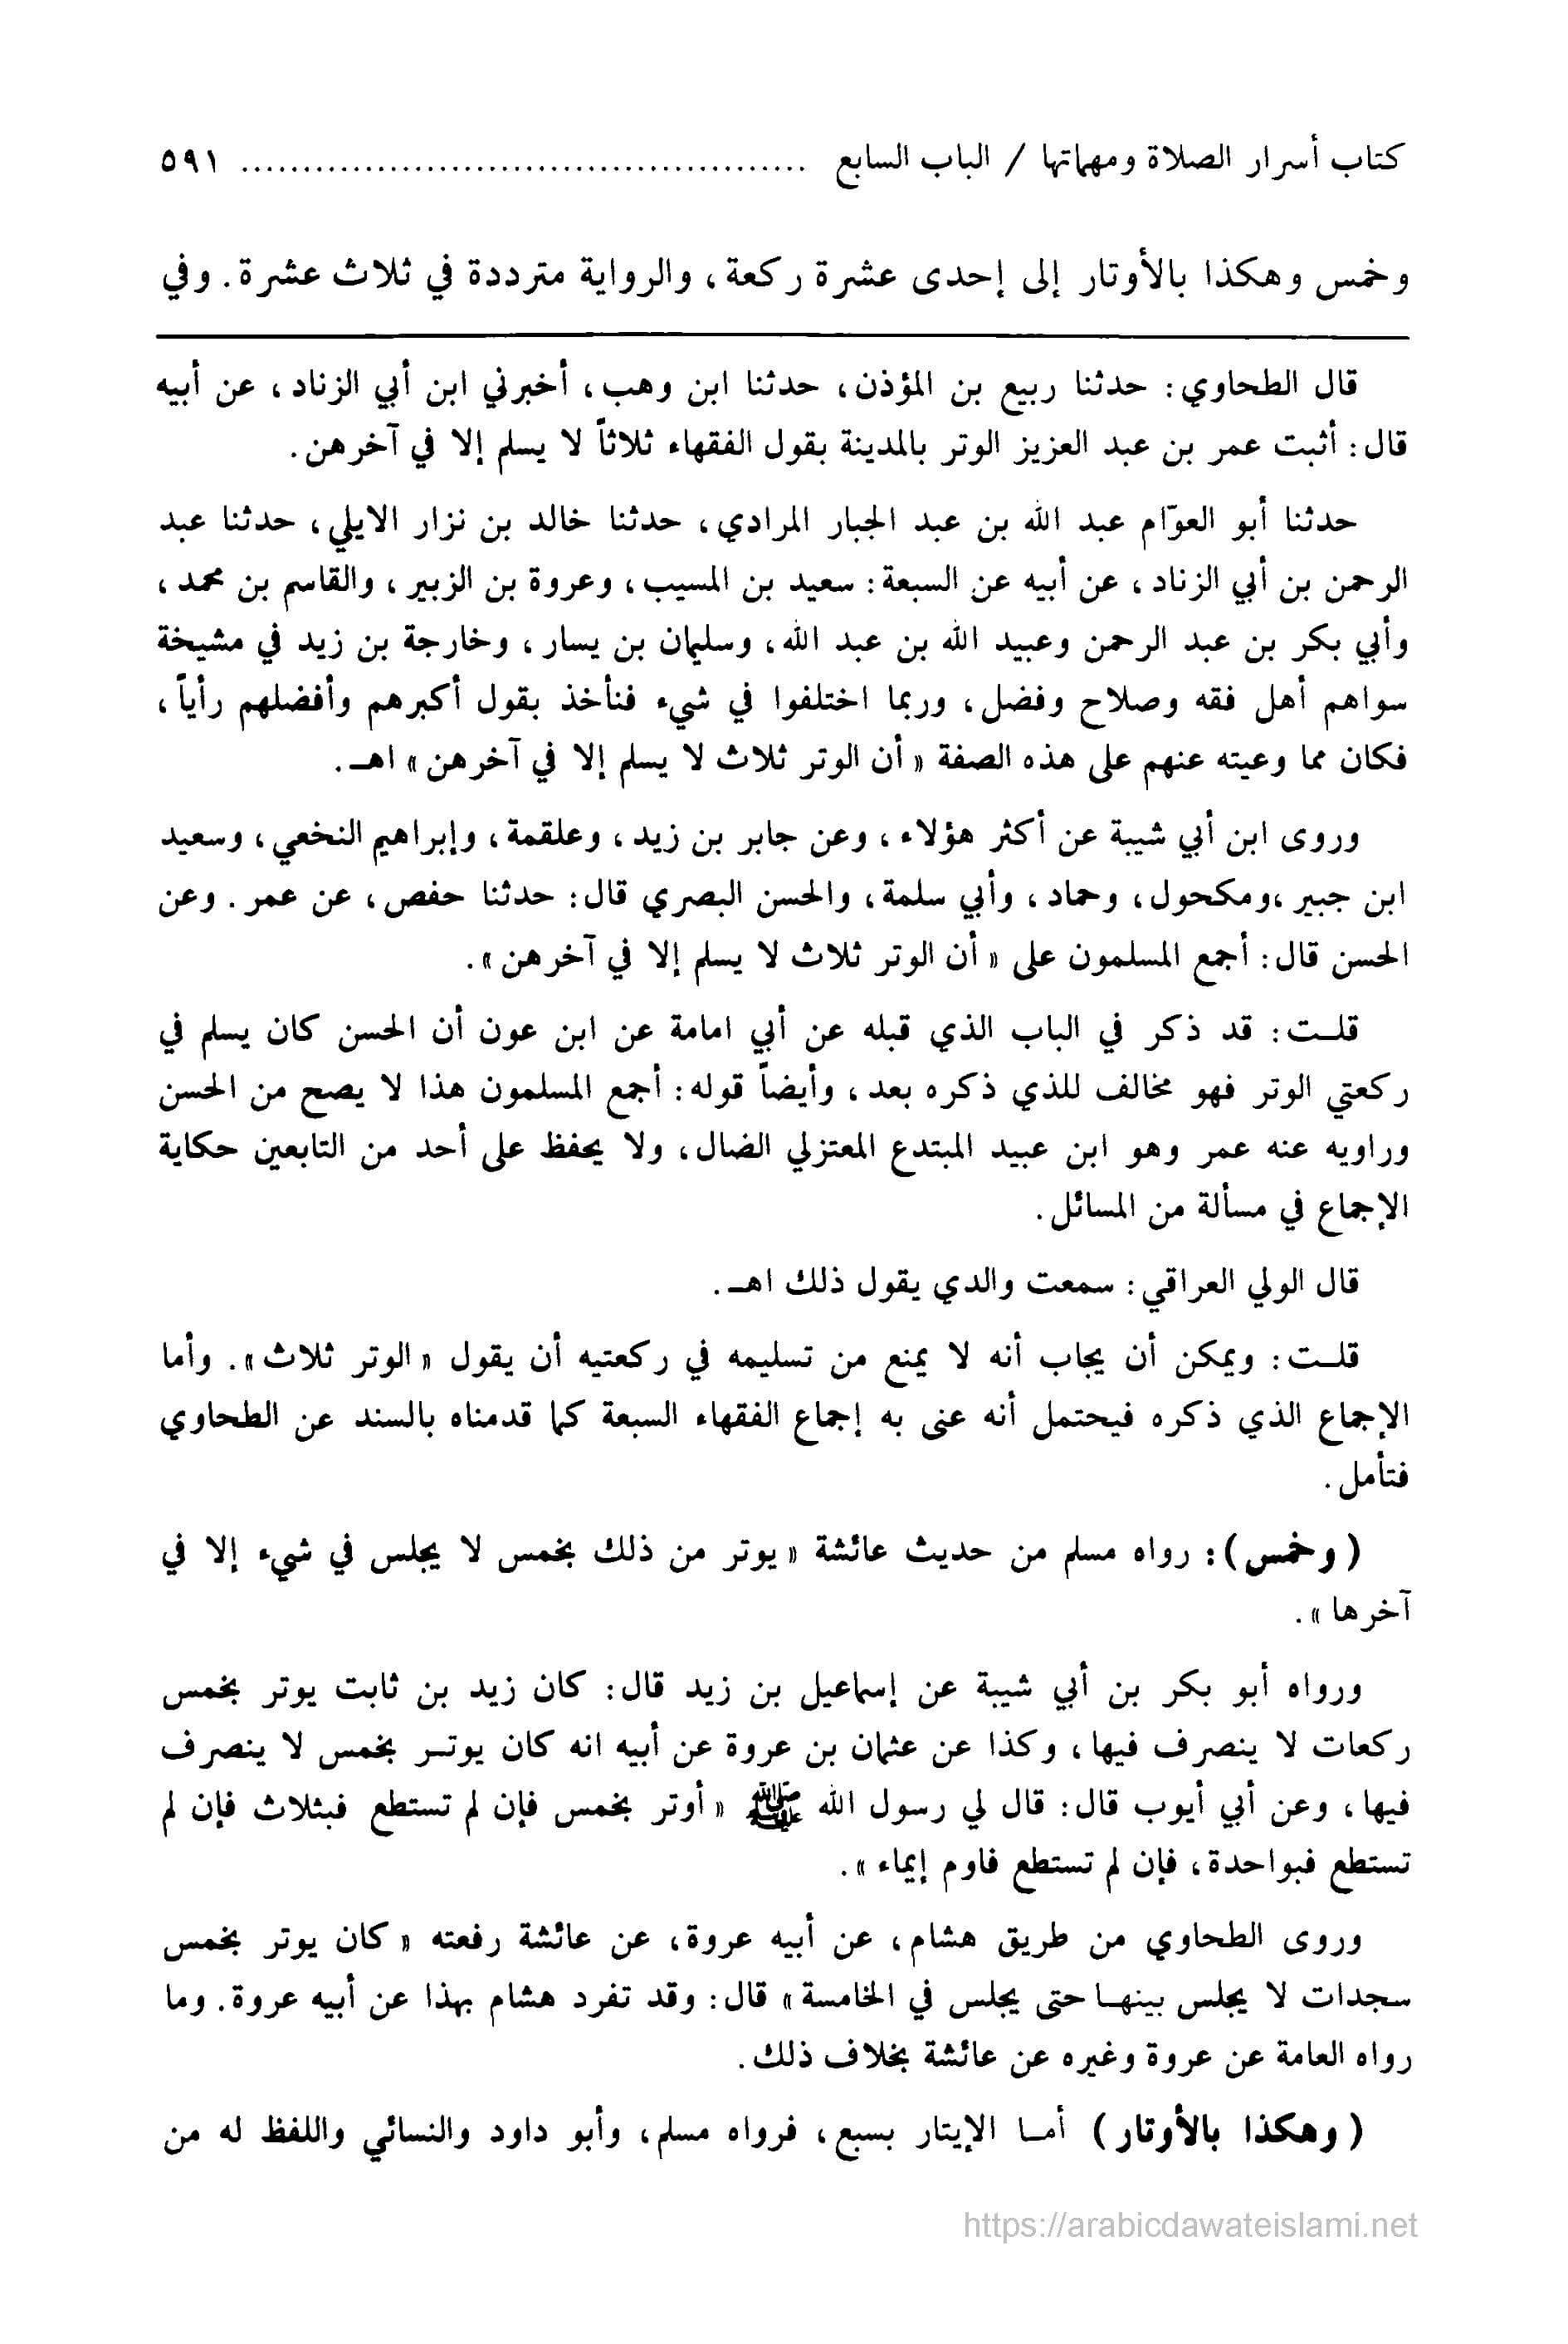 كتاب أسرار الصلاة ومهماتها / الباب السابع .............................................. ٥٩١
وخمس وهكذا بالأوتار إلى إحدى عشرة ركعة، والرواية مترددة في ثلاث عشرة. وفي
قال الطحاوي: حدثنا ربيع بن المؤذن، حدثنا ابن وهب، أخبرني ابن أبي الزناد، عن أبيه
قال: أثبت عمر بن عبد العزيز الوتر بالمدينة بقول الفقهاء ثلاثاً لا يسلم إلا في آخرهن.
حدثنا أبو العوّام عبد الله بن عبد الجبار المرادي، حدثنا خالد بن نزار الايلي، حدثنا عبد
الرحمن بن أبي الزناد، عن أبيه عن السبعة: سعيد بن المسيب، وعروة بن الزبير، والقاسم بن محمد،
وأبي بكر بن عبد الرحمن وعبيد الله بن عبد الله، وسليمان بن يسار، وخارجة بن زيد في مشيخة
سواهم أهل فقه وصلاح وفضل، وربما اختلفوا في شيء فنأخذ بقول أكبرهم وأفضلهم رأياً،
فكان مما وعيته عنهم على هذه الصفة «أن الوتر ثلاث لا يسلم إلا في آخرهن» اهـ.
وروى ابن أبي شيبة عن أكثر هؤلاء، وعن جابر بن زيد، وعلقمة، وإبراهيم النخعي، وسعيد
ابن جبير،ومكحول، وحماد، وأبي سلمة، والحسن البصري قال: حدثنا حفص، عن عمر. وعن
الحسن قال: أجمع المسلمون على «أن الوتر ثلاث لا يسلم إلا في آخرهن».
قلـت: قد ذكر في الباب الذي قبله عن أبي امامة عن ابن عون أن الحسن كان يسلم في
ركعتي الوتر فهو مخالف للذي ذكره بعد، وأيضاً قوله: أجمع المسلمون هذا لا يصح من الحسن
وراويه عنه عمر وهو ابن عبيد المبتدع المعتزلي الضال، ولا يحفظ على أحد من التابعين حكاية
الإجماع في مسألة من المسائل.
قال الولي العراقي: سمعت والدي يقول ذلك اهـ.
قلـت: ويمكن أن يجاب أنه لا يمنع من تسليمه في ركعتيه أن يقول «الوتر ثلاث». وأما
الإجماع الذي ذكره فيحتمل أنه عنى به إجماع الفقهاء السبعة كما قدمناه بالسند عن الطحاوي
فتأمل.
(وخمس): رواه مسلم من حديث عائشة «يوتر من ذلك بخمس لا يجلس في شيء إلا في
آخرها».
ورواه أبو بكر بن أبي شيبة عن إسماعيل بن زيد قال: كان زيد بن ثابت يوتر بخمس
ركعات لا ينصرف فيها، وكذا عن عثمان بن عروة عن أبيه انه كان يوتـر بخمس لا ينصرف
فيها، وعن أبي أيوب قال: قال لي رسول الله ﷺ «أوتر بخمس فإن لم تستطع فبثلاث فإن لم
تستطع فبواحدة، فإن لم تستطع فاوم إيماء».
وروى الطحاوي من طريق هشام، عن أبيه عروة، عن عائشة رفعته «كان يوتر بخمس
سجدات لا يجلس بينهـا حتى يجلس في الخامسة» قال: وقد تفرد هشام بهذا عن أبيه عروة. وما
رواه العامة عن عروة وغيره عن عائشة بخلاف ذلك.
(وهكذا بالأوتار) أمـا الإيتار بسبع، فرواه مسلم، وأبو داود والنسائي واللفظ له من
https://arabicdawateislami.net